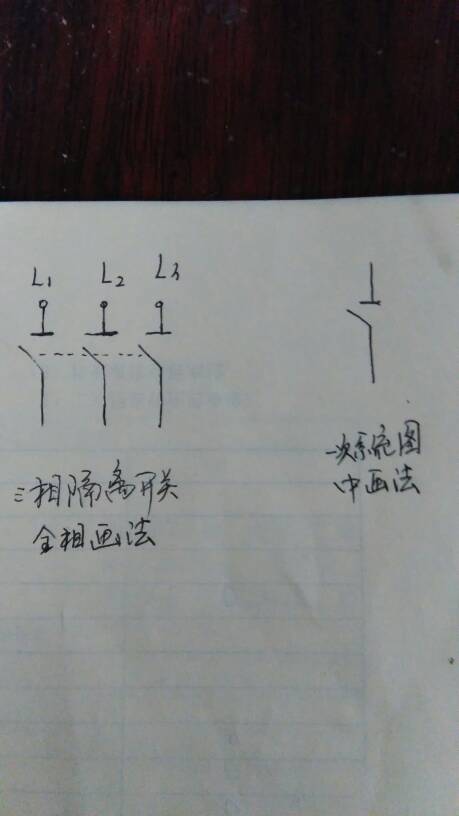 L1 L2 L3
三相隔离开关
全相画法
一次系统图
中画法